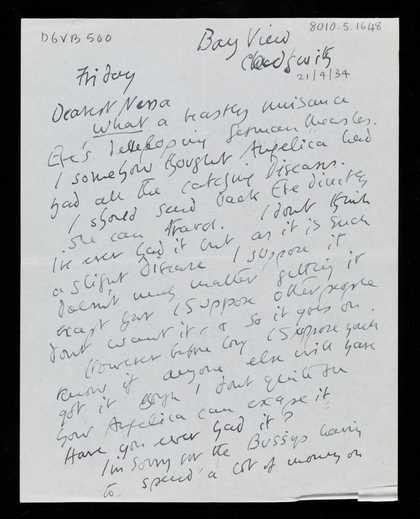 DGVB 500
8010.5.1648
Bay View
Cadgwith
21/9/34
Friday
Dearest Nessa
What a beastly nuisance
Eve's developing German Measles.
I somehow thought Angelica had
had all the catching diseases.
I should send back Eve directly
she can travel. I dont think
I've ever had it but as it is such
a slight disease I suppose it
doesnt much matter getting it
except that I suppose other people
dont want it & so it goes on
However before long I suppose you'll
know if anyone else will have
got it though I dont quite see
how Angelica can escape it
Have you ever had it?
I'm sorry for the Bussys having
to spend a lot of money on